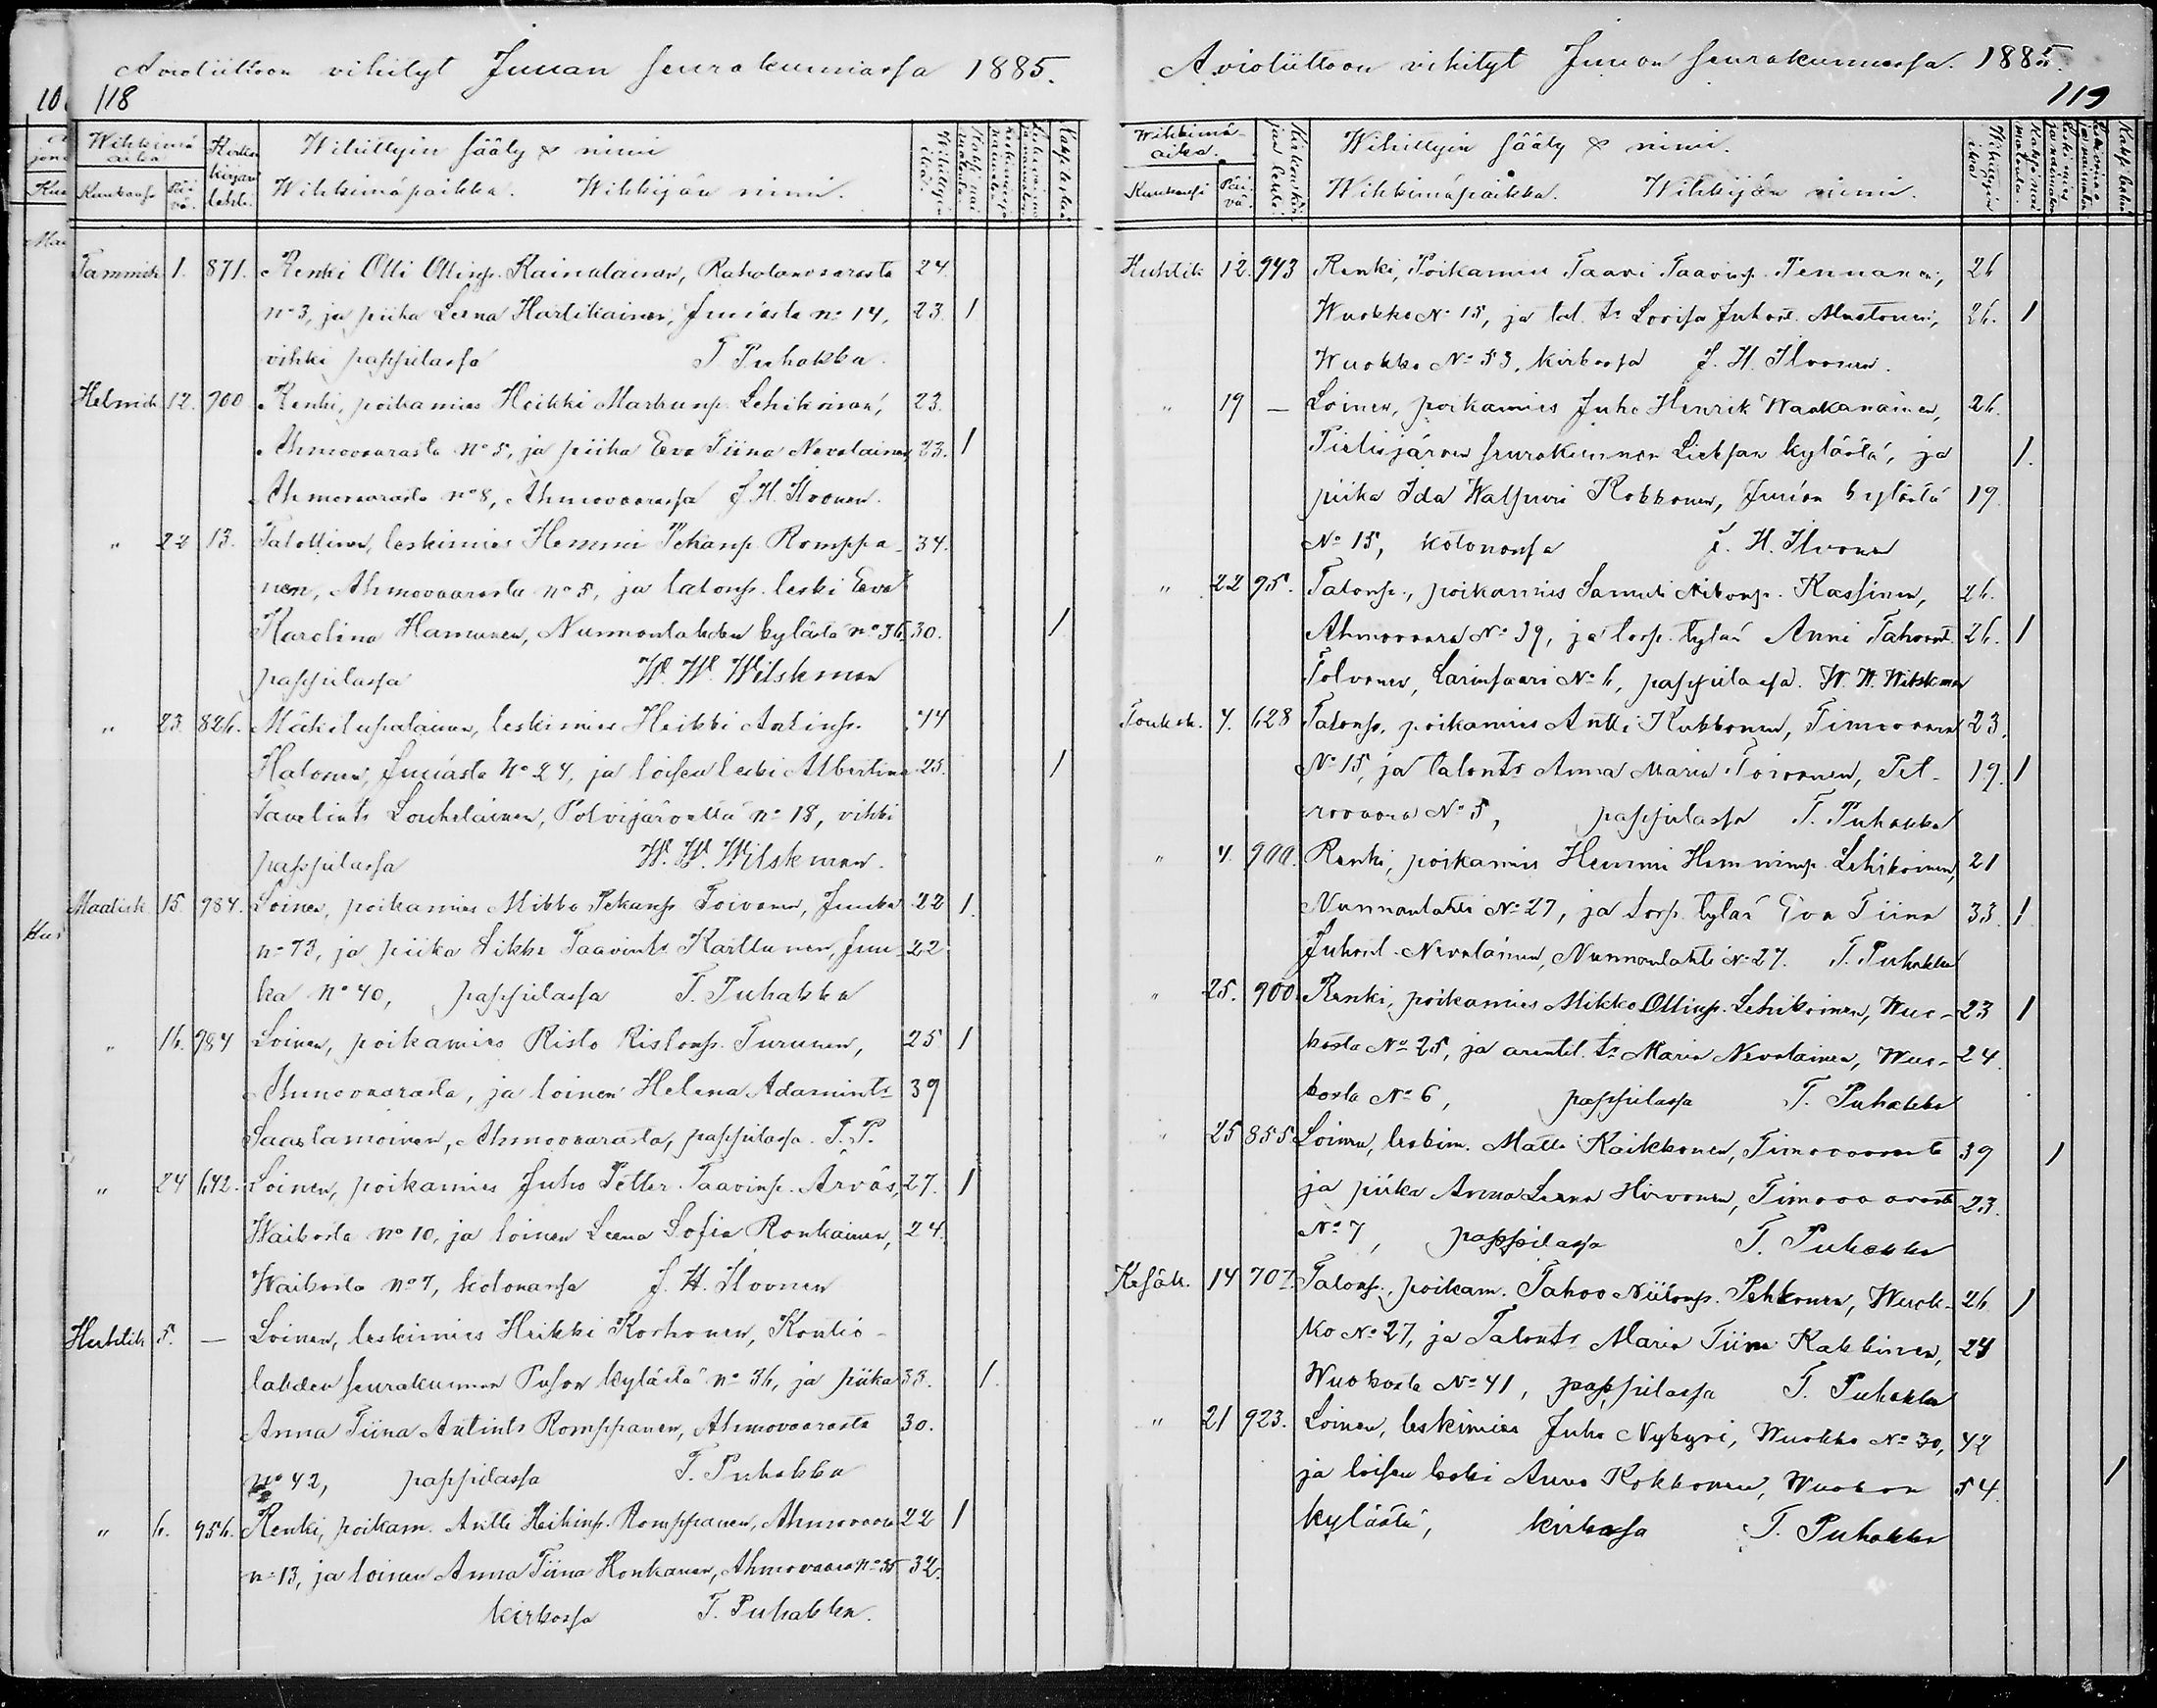 Avioliittoon vihityt Juuan seurakunnassa 1885.
118
Wihkimä aika
Kuukausi
Päi-vä.
Kirkonkirjan lehti.
Wihittyin sääty & nimi
Wihkimäpaikka. Wihkijän nimi.
Wihittyin ikä.
Tammik. 1. 871. Renki Olli Ollinp. Rainalainen, Raholanvaarasta 24.
no 3, ja piika Leena Hartikainen, Juuasta no 14, 23. 1
vihki pappilassa T. Puhakka.
Helmik. 12. 900 Renki, poikamies Heikki Markunp. Lehikoinen, 23.
Ahmovaarasta No 5, ja piika Eeva Tiina Nevalainen, 23. 1
Ahmovaarasta no 8, Ahmovaarassa J. H. Ilvonen.
" 22 13. Talollinen, leskimies Hemmi Pekanp. Romppa- 34.
nen, Ahmovaarasta no 5, ja talonp. leski Eeva
Karolina Hamunen, Nunnanlahden kylästä no 36. 30. 1
pappilassa W. W. Wilskman
" 23. 826. Mäkitupalainen, leskimies Heikki Antinp. 44
Halonen, Juuasta No 24, ja loisen leski Albertina 25. 1
Taavelints Louhelainen, Polvijärveltä no 18, vihki
pappilassa W. W. Wilskman.
Maalisk. 15. 984. Loinen, poikamies Mikko Pekanp. Toivonen, Juuka 22 1.
no 73, ja piika Sikke Taavints. Karttunen, Juu- 22
ka No 40, pappilassa T. Puhakka
" 16. 984 Loinen, poikamies Risto Ristonp. Turunen, 25 1
Ahmovaarasta, ja loinen Helena Adamints 39
Saastamoinen, Ahmovaarasta, pappilassa. T. P.
" 24 642. Loinen, poikamies Juho Petter Taavinp. Ärväs, 27. 1
Waikosta No 10, ja loinen Leena Sofia Ronkainen, 24.
Waikosta No 7, kotonansa J. H. Ilvonen
Huhtik. 5. — Loinen, leskimies Heikki Korhonen, Kontio-
lahden seurakunnan Puson kylästä no 36, ja piika 33. 1.
Anna Tiina Antints Romppanen, Ahmovaarasta 30.
No 42, pappilassa T. Puhakka
" 6. 956. Renki, poikam. Antti Heikinp. Romppanen, Ahmovaara 22 1
no 13, ja loinen Anna Tiina Honkanen, Ahmovaara no 35 32.
kirkossa T. Puhakka.
Avioliittoon vihityt Juuan seurakunnassa. 1885.
119
Wihkimä-aika.
Kuukausi
Päi-vä.
Kirkonkir-jan lehti.
Wihittyin sääty & nimi.
Wihkimäpaikka. Wihkijän nimi.
Wihittyin ikä
Huhtik. 12. 943 Renki, Poikamies Taavi Taavinp. Tennanen, 26
Wuokko No 15, ja tal. tr Lovisa Juhont. Mustonen, 26. 1
Wuokko No 53, kirkossa J. H. Ilvonen.
" 19 — Loinen, poikamies Juho Henrik Waakanainen, 26.
Pielisjärven seurakunnan Lieksan kylästä, ja 1.
piika Ida Walpuri Kokkonen, Juuan kylästä 19
No 15, kotonansa J. H. Ilvonen
" 22 95. Talonp., poikamies Samuli Niilonp. Kassinen, 26.
Ahmovaara No 39, ja torp. tytär Anni Tahvont. 26. 1
Tolvanen, Larinsaari No 6, pappilassa. W. W. Wilskman
Toukok. 4. 628 Talonp. poikamies Antti Kukkonen, Timovaara 23.
No 15, ja talonts Anna Maria Toivonen, Pet- 19. 1
rovaara No 5, pappilassa T. Puhakka
" 4. 900. Renki, poikamies Hemmi Hemminp. Lehikoinen, 21
Nunnanlahti No 27, ja torp. tytär Eva Tiina 33. 1
Juhont. Nevalainen, Nunnanlahti No 27. T. Puhakka
" 25. 900. Renki, poikamies Mikko Ollinp. Lehikoinen, Wuo- 23 1
kosta No 25, ja arentil. tr Maria Nevalainen, Wuo- 24.
kosta No 6, pappilassa T. Puhakka
" 25 855 Loinen, leskim. Matti Kaikkonen, Timovaarasta 39 1
ja piika Anna Leena Hirvonen, Timovaarasta 23.
No 7, pappilassa T. Puhakka
Kesäk. 14 707. Talonp., poikam. Tahvo Niilonp. Pehkonen, Wuok- 26 1
ko No 27, ja Talonts Maria Tiina Kakkinen, 24
Wuokosta No 41, pappilassa T. Puhakka
" 21 923. Loinen, leskimies Juho Nykyri, Wuokko No 30, 42
ja loisen leski Anna Kokkonen, Wuokon 54. 1
kylästä, kirkossa T. Puhakka